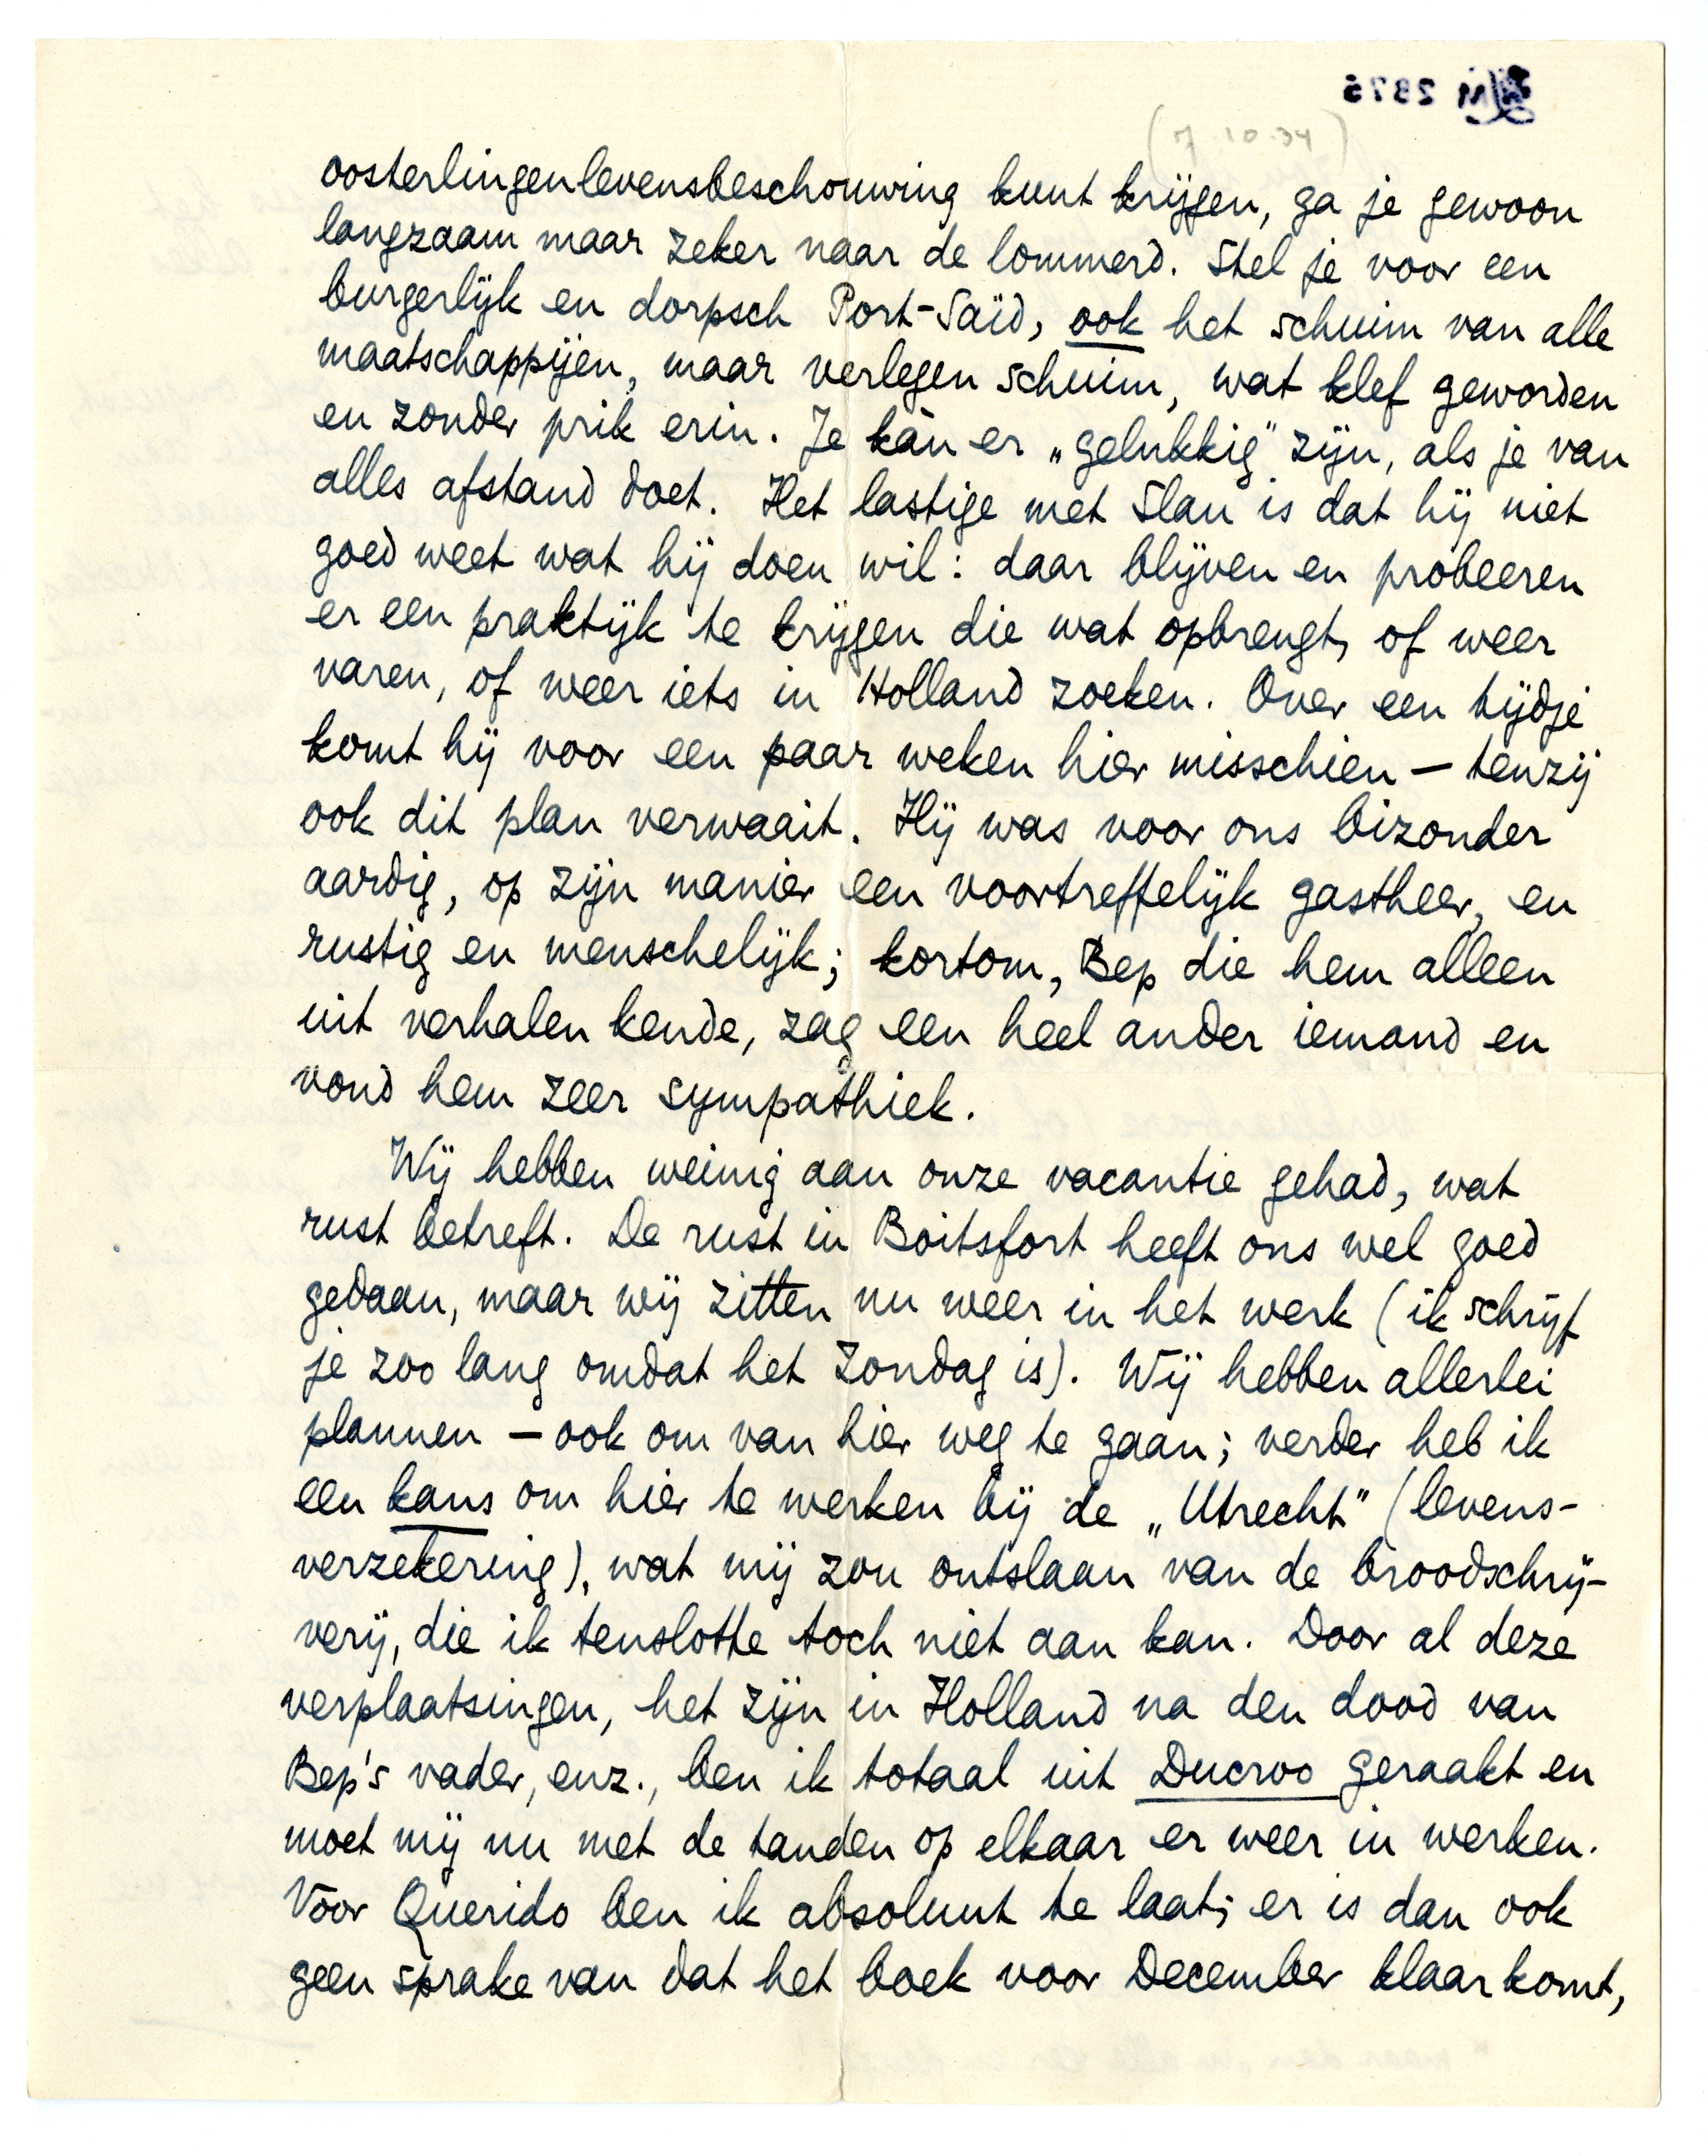 (7.10.34)
oosterlingenlevensbeschouwing kunt krijgen, ga je gewoon
langzaam maar zeker naar de lommerd. Stel je voor een
burgerlijk en dorpsch Port-Saïd, ook het schuim van alle
maatschappijen, maar verlegen schuim, wat klef geworden
en zonder prik erin. Je kàn er „gelukkig" zijn, als je van
alles afstand doet. Het lastige met Slau is dat hij niet
goed weet wat hij doen wil: daar blijven en probeeren
er een praktijk te krijgen die wat opbrengt, of weer
varen, of weer iets in Holland zoeken. Over een tijdje
komt hij voor een paar weken hier misschien — tenzij
ook dit plan verwaait. Hij was voor ons bizonder
aardig, op zijn manier een voortreffelijk gastheer, en
rustig en menschelijk; kortom, Bep die hem alleen
uit verhalen kende, zag een heel ander iemand en
vond hem zeer sympathiek.
Wij hebben weinig aan onze vacantie gehad, wat
rust betreft. De rust in Boitsfort heeft ons wel goed
gedaan, maar wij zitten nu weer in het werk (ik schrijf
je zoo lang omdat het Zondag is). Wij hebben allerlei
plannen — ook om van hier weg te gaan; verder heb ik
een kans om hier te werken bij de „Utrecht" (levens-
verzekering), wat mij zou ontslaan van de broodschrij-
verij, die ik tenslotte toch niet aan kan. Door al deze
verplaatsingen, het zijn in Holland na den dood van
Bep's vader, enz., ben ik totaal uit Ducroo geraakt en
moet mij nu met de tanden op elkaar er weer in werken.
Voor Querido ben ik absoluut te laat; er is dan ook
geen sprake van dat het boek voor December klaar komt,